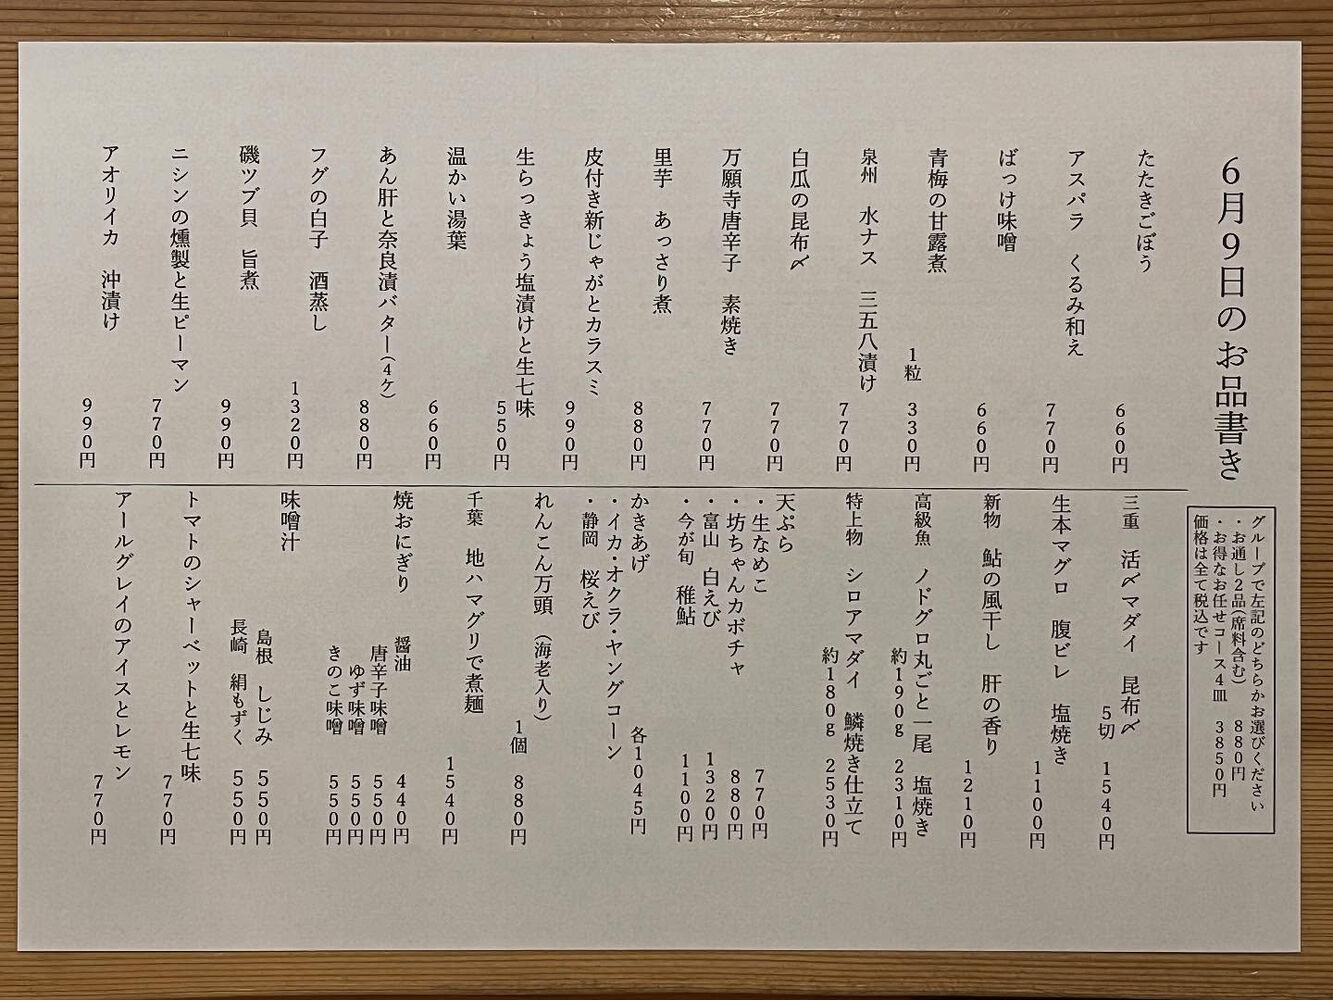 6月9日のお品書き
グループで左記のどちらかお選びください
・お通し2品(席料含む) 880円
・お得なお任せコース4皿 3850円
価格は全て税込です
たたきごぼう 660円
アスパラ くるみ和え 770円
ばっけ味噌 660円
青梅の甘露煮 1粒 330円
泉州 水ナス 三五八漬け 770円
白瓜の昆布〆 770円
万願寺唐辛子 素焼き 770円
里芋 あっさり煮 880円
皮付き新じゃがとカラスミ 990円
生らっきょう塩漬けと生七味 550円
温かい湯葉 660円
あん肝と奈良漬バター(4ケ) 880円
フグの白子 酒蒸し 1320円
磯ツブ貝 旨煮 990円
ニシンの燻製と生ピーマン 770円
アオリイカ 沖漬け 990円
三重 活〆マダイ 昆布〆 5切 1540円
生本マグロ 腹ビレ 塩焼き 1100円
新物 鮎の風干し 肝の香り 1210円
高級魚 ノドグロ丸ごと一尾 塩焼き 約190g 2310円
特上物 シロアマダイ 鱗焼き仕立て 約180g 2530円
天ぷら
・生なめこ 770円
・坊ちゃんカボチャ 880円
・富山 白えび 1320円
・今が旬 稚鮎 1100円
かきあげ 各1045円
・イカ・オクラ・ヤングコーン
・静岡 桜えび
れんこん万頭 (海老入り) 1個 880円
千葉 地ハマグリで煮麺 1540円
焼おにぎり 醤油 440円
唐辛子味噌 550円
ゆず味噌 550円
きのこ味噌 550円
味噌汁
島根 しじみ 550円
長崎 絹もずく 550円
トマトのシャーベットと生七味 770円
アールグレイのアイスとレモン 770円